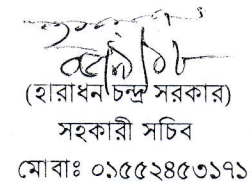 (হারাধন চন্দ্র সরকার)
সহকারী সচিব
মোবাঃ ০১৫৫২৪৫৩১৭১